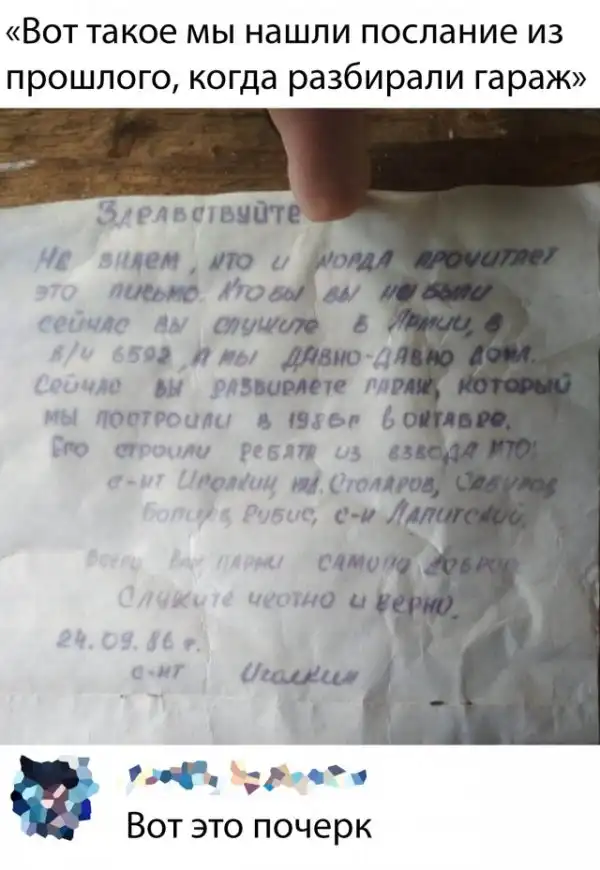 «Вот такое мы нашли послание из
прошлого, когда разбирали гараж»
Здравствуйте
Не знаем, кто и когда прочитает
это письмо. Кто бы вы не были
сейчас вы служите в Армии, в
в/ч 6592, а мы давно-давно дома.
Сейчас вы разбираете гараж, который
мы построили в 1986г в октябре.
Его строили ребята из взвода ИТО:
с-нт Иголкин, Столяров,
Рубис, с-
Всего вам парни самого доброго
Служите честно и верно.
24.09.86 г.
с-нт Иголкин
Вот это почерк